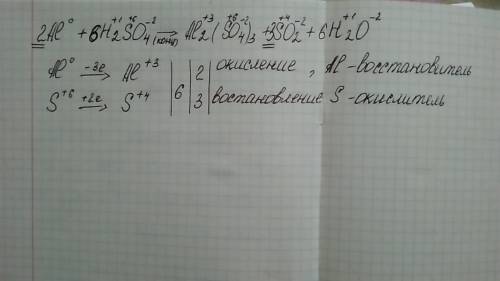 2Al⁰ + 6H₂⁺¹S⁺⁶O₄⁻²(конц) → Al₂⁺³(S⁺⁶O₄⁻²)₃ + 3S⁺⁴O₂⁻² + 6H₂⁺¹O⁻²
Al⁰ −3e → Al⁺³ | | 2 | окисление, Al - восстановитель
S⁺⁶ +2e → S⁺⁴ | 6 | 3 | востановление S - окислитель